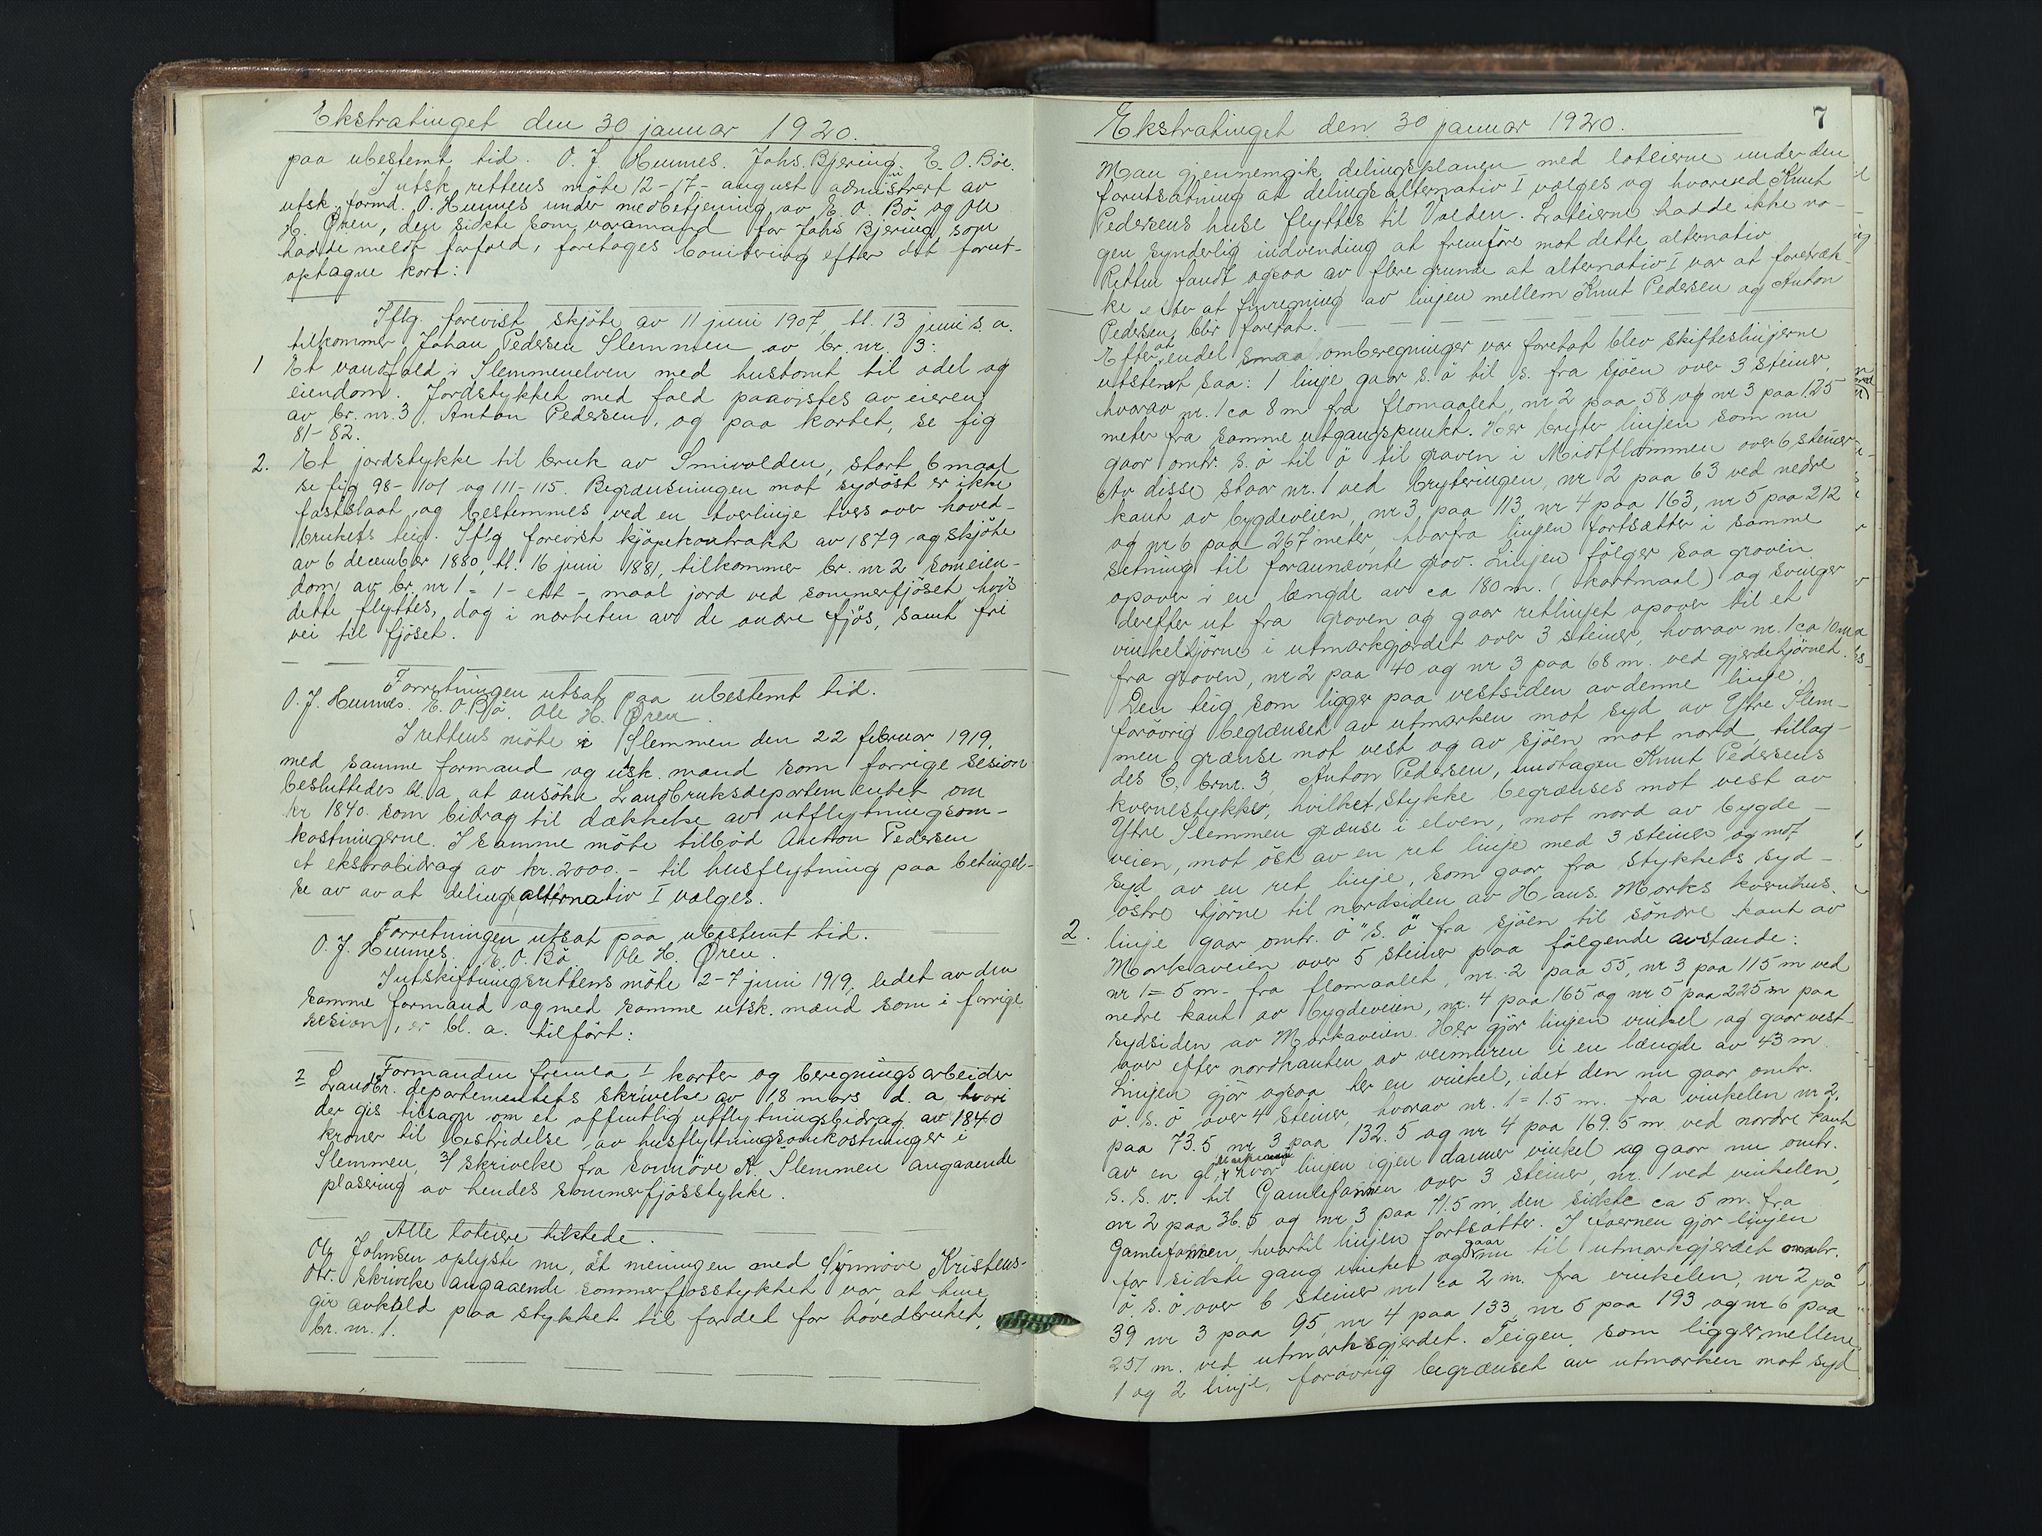 Ekstratinget den 30 januar 1920.
paa ubestemt tid. O. J. Hunnes. Johs. Bjering. E. O. Böe.
I utsk. rettens möte 12-17- august administrert av
utsk. formd. O. Hunnes under medbetjening av E. O. Bö og Ole
H. Øren, den sidste som varamand for Johs Bjering som
hadde meldt forfald, foretoges bonitering efter det forut-
optagne kort:
Iflg. forevist skjöte av 11 juni 1907 tl. 13 juni s. a.
tilkommer Johan Pedersen Slemmen av br. nr. 3:
1 Et vandfald i Slemmenelven med hustomt til odel og
eiendom. Jordstykket med fald paavistes av eieren
av br. nr. 3, Anton Pedersen, og paa kartet, se fig
81-82.
2. Et jordstykke til bruk av Smivolden, stort 6 maal
se fig 98-101 og 111-115. Begrænsningen mot sydöst er ikke
fastslaat, og bestemmes ved en tverlinje tvers over hoved-
brukets teig. Iflg forevist kjöpekontrakt av 1879 og skjöte
av 6 december 1880, tl. 16 juni 1881, tilkommer br. nr 2 som eien-
dom av br. nr 1 = 1 - ett - maal jord ved sommerfjöset hvis
dette flyttes, dog i nærheten av de andre fjös, samt fri
vei til fjöset.
Forretningen utsat paa ubestemt tid.
O. J. Hunnes. E. O. Bö. Ole H. Øren.
I rettens möte i Slemmen den 22 februar 1919,
med samme formand og utsk. mænd som forrige sesion
besluttedes bl. a. at ansöke Landbruksdepartementet om
kr 1840. som bidrag til dækkelse av utflytningsom-
kostningerne. I samme möte tilböd Anton Pedersen
et ekstrabidrag av kr. 2000.- til husflytning paa betingel-
se av av at delingsalternativ I valges.
Forretningen utsat paa ubestemt tid.
O. J. Hunnes. E. O. Bö Ole H. Øren.
I utskiftningsrettens möte 2-7 juni 1919, ledet av den
samme formand og med samme utsk. mænd som i forrige
sesion, er bl. a. tilfört:
Formanden fremla 1 karter og beregningsarbeider
2 Landbr. departementets skrivelse av 18 mars d. a. hvori
der gis tilsagn om et offentlig utflytningsbidrag av 1840
kroner til bestridelse av husflytningsomkostninger i
Slemmen, 3/ skrivelse fra Synnöve A. Slemmen angaaende
plasering av hendes sommerfjösstykke.
Alle loteiere tilstede.
Ole Johnsen oplyste nu, at meningen med Synnöve Kristens-
dtr. skrivelse angaaende sommerfjösstykket var, at hun
gir avkald paa stykket til fordel for hovedbruket,
br. nr. 1.
Ekstratinget den 30 januar 1920.
7
Man gjennemgik delingsplanen med loteierne under den
forutsætning at delingsalternativ I valges og hvorved Knut
Pedersens huse flyttes til Volden. Loteierne hadde ikke no-
gen synderlig indvending at fremföre mot dette alternativ
Retten fandt ogsaa av flere grunde at alternativ I var at foretræk-
ke efter at finregning av linjen mellem Knut Pedersen og Anton
Pedersen, blir foretat.
Efter at endel smaa omberegninger var foretat blev skifteslinjerne
utstenet saa: 1 linje gaar s. ö til s. fra sjöen over 3 steiner,
hvorav nr. 1 ca 8 m fra flomaalet, nr 2 paa 58 og nr 3 paa 125
meter fra samme utgangspunkt. Her bryter linjen som nu
gaar omtr. s. ö til ö til graven i Midtflæmmen over 6 steiner
Av disse staar nr. 1 ved bryteringen, nr 2 paa 63 ved nedre
kant av bygdeveien, nr 3 paa 113, nr 4 paa 163, nr 5 paa 212
og nr 6 paa 267 meter, hvorfra linjen fortsætter i samme
retning til forannævnte grov. Linjen fölger saa groven
opover i en længde av ca 180 m. (kartmaal) og svinger
derefter ut fra groven og gaar retlinjet opover til et
vinkelhjörne i utmarkgjærdet over 3 steiner, hvorav nr. 1 ca 10 m
fra groven, nr 2 paa 40 og nr 3 paa 68 m. ved gjerdehjörnet.
Den teig som ligger paa vestsiden av denne linje,
forövrig begrænset av utmarken mot syd av Ytre Slem-
men grænse mot vest og av sjöen mot nord, tillag-
des b. brnr. 3, Anton Pedersen, undtagen Knut Pedersens
kvernestykke, hvilket stykke begrænses mot vest av
Ytre Slemmen grænse i elven, mot nord av bygde-
veien, mot öst av en ret linje med 3 steiner og mot
syd av en ret linje, som gaar fra stykkets syd-
östre hjörne til nordsiden av Hans. Morkes kvernhus.
2. linje gaar omtr. ö" s. ö fra sjöen til söndre kant av
Morkaveien over 5 steiner paa fölgende avstande:
nr 1 = 5 m - fra flomaalet, nr. 2 paa 55, nr 3 paa 115 m ved
nedre kant av bygdeveien, nr. 4 paa 165 og nr 5 paa 225 m paa
sydsiden av Morkaveien. Her gjör linjen vinkel og gaar vest-
over efter nordkanten av veimuren i en længde av 43 m.
Linjen gjör ogsaa her en vinkel, idet den nu gaar omtr.
ö. s. ö over 4 steiner, hvorav nr. 1 = 1.5 m. fra vinkelen nr 2,
paa 73.5 nr 3 paa 132.5 og nr 4 paa 169.5 m. ved nordre kant
av en gl. hvor linjen igjen danner vinkel og gaar nu omtr.
s. s. v. til Gamlefonnen over 3 steiner, nr. 1 ved vinkelen,
nr 2 paa 36.5 og nr 3 paa 71.5 m, den sidste ca 5 m. fra
Gamlefonnen, hvortil linjen fortsætter. I fonnen gjör linjen
for sidste gang vinkel og gaar nu til utmarkgjerdet omtr.
ö. s. ö over 6 steiner nr 1 ca 2 m. fra vinkelen, nr 2 på
39 nr 3 paa 95, nr 4 paa 133, nr 5 paa 193 og nr 6 paa
251 m. ved utmarksgjerdet. Teigen som ligger mellem
1 og 2 linje, forövrig begrænset av utmarken mot syd